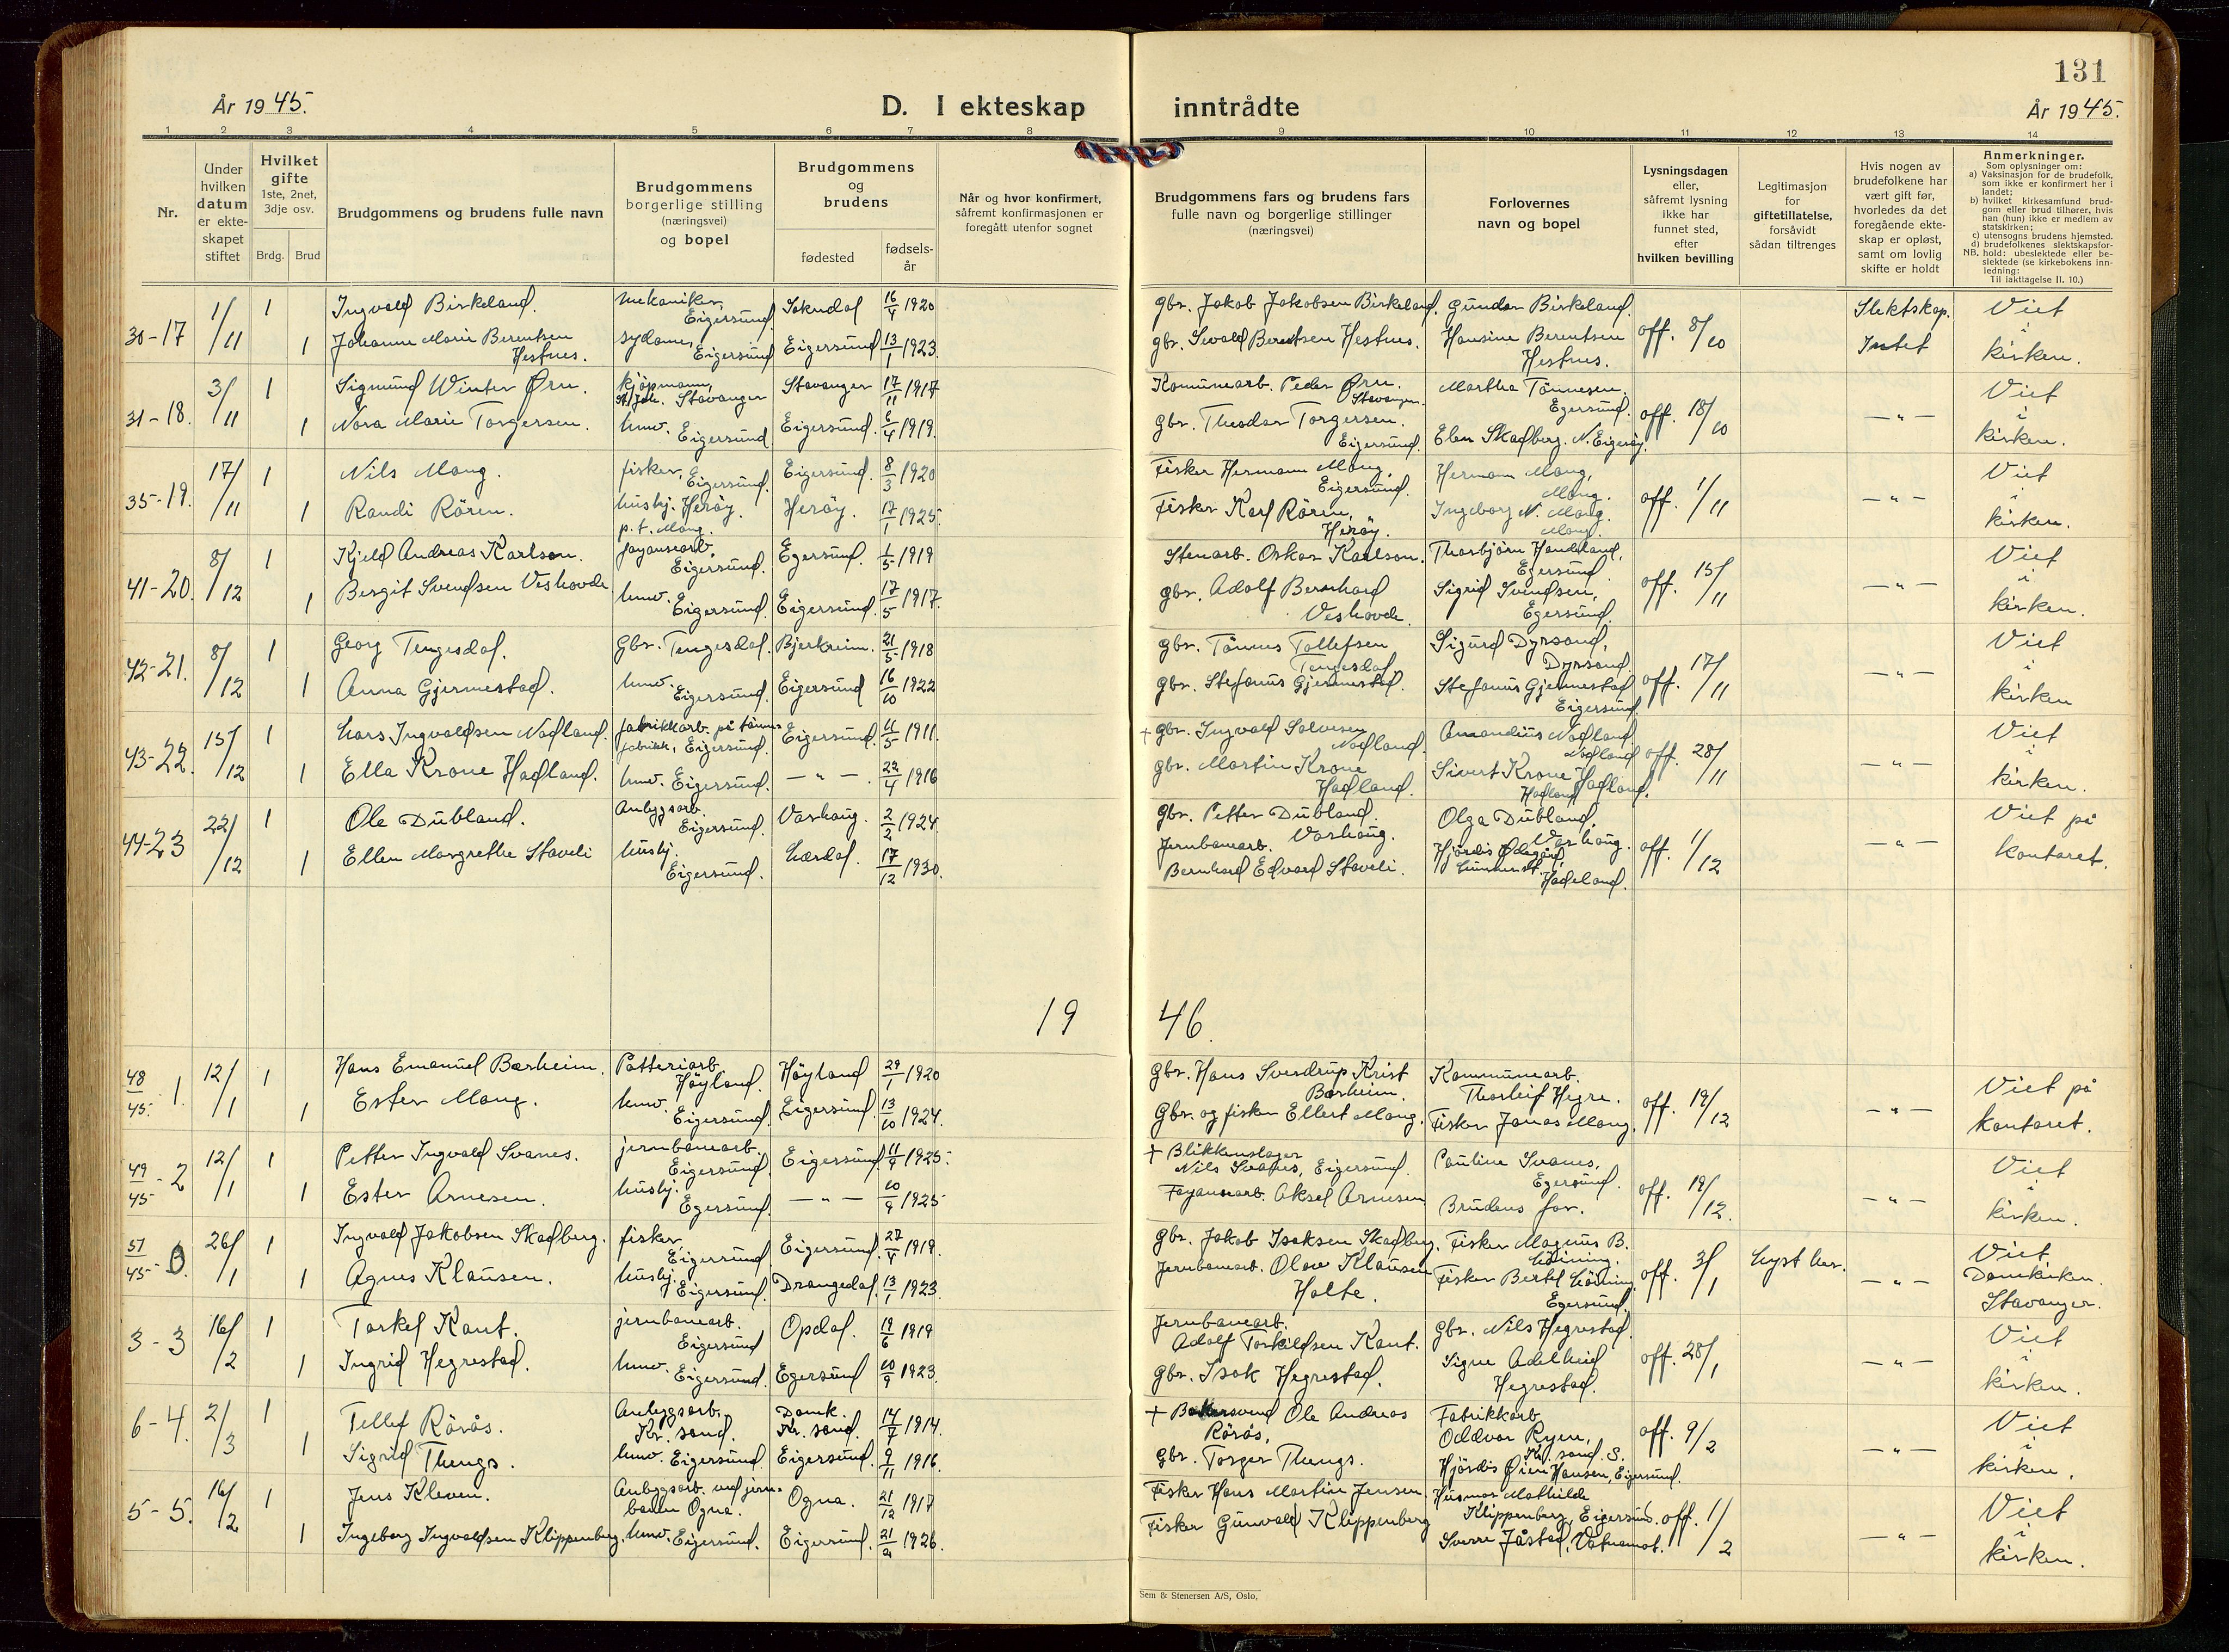 131
År 1945.
D. I ekteskap inntrådte
År 1945.
1 2 3 4 5 6 7 8 9 10 11 12 13 14
Nr.
Under hvilken datum er ekteskapet stiftet
Hvilket gifte
1ste, 2net, 3dje osv.
Brdg. Brud
Brudgommens og brudens fulle navn
Brudgommens borgerlige stilling (næringsvei) og bopel
Brudgommens og brudens
fødested
fødsels-år
Når og hvor konfirmert, såfremt konfirmasjonen er foregått utenfor sognet
Brudgommens fars og brudens fars fulle navn og borgerlige stillinger (næringsvei)
Forlovernes navn og bopel
Lysningsdagen eller, såfremt lysning ikke har funnet sted, efter hvilken bevilling
Legitimasjon for giftetillatelse, forsåvidt sådan tiltrenges
Hvis nogen av brudefolkene har vært gift før, hvorledes da det foregående ekteskap er opløst, samt om lovlig skifte er holdt
Anmerkninger.
Som oplysninger om:
a) Vaksinasjon for de brudefolk, som ikke er konfirmert her i landet;
b) hvilket kirkesamfund brudgom eller brud tilhører, hvis han (hun) ikke er medlem av statskirken;
c) utensogns brudens hjemsted.
d) brudefolkenes slektskapsforhold: ubeslektede eller beslektede (se kirkebokens innledning:
NB.
Til iakttagelse II. 10.)
30-17 1/11 1 Ingvald Birkeland. mekaniker, Eigersund Sokndal 16/4 1920 gbr. Jakob Jakobsen Birkeland. Gunder Birkeland. off. 8/10 Slektskap. Viet
1 Johanne Marie Berentsen Hestnes. sydame, Eigersund Eigersund 13/1 1923. gbr. Sivald Berentsen Hestnes. Hansine Berentsen Hestnes. Intet i kirken.
31-18. 3/11 1 Sigmund Winter Ørn. kjøpmann, Stavanger Stavanger 17/11 1917 Komunearb. Peder Ørn. Stavanger. Martha Tönnesen, Egersund. off. 18/10 —"— Viet
1 Nora Marie Torgersen. hmv. Eigersund Eigersund. 6/4 1919. gbr. Theodor Torgersen. Eigersund. Eben Skadberg. N. Eigerøy. i kirken.
35-19. 17/11 1 Nils Mong. fisker, Eigersund. Eigersund. 8/3 1920 Fisker Hermann Mong, Eigersund. Hermann Mong, Mong. off. 1/11 —"— Viet
1 Randi Rören. hushj. Herøy. p.t. Mong. Herøy. 17/1 1925. Fisker Karl Rören, Herøy. Ingeborg N. Mong. Mong. i kirken.
41-20. 8/12 1 Kjeld Andreas Karlson. fayansearb. Eigersund. Egersund. 1/5 1919 Stenarb. Oskar Karlson. Thorbjörn Handeland, Egersund. off. 15/11 —"— Viet
1 Bergit Svendsen Veshovde hmv. Eigersund. Eigersund. 17/5 1917. gbr. Adolf Bernhard Veshovde. Sigrid Svendsen, Egersund. i kirken.
42-21. 8/12 1 Georg Tengesdal. Gbr. Tengesdal. Bjerkreim. 21/5 1918 gbr. Tönnes Tollefsen Tengesdal Sigurd Dyrsand, Dyrsand. off. 17/11 —"— Viet
1 Anna Gjermestad. hmv. Eigersund. Eigersund 16/10 1922 gbr. Stefanus Gjermestad. Stefanus Gjermestad Eigersund. i kirken
43-22. 15/12 1 Lars Ingvaldsen Nodland. fabrikkarb. på tönnefabrikk, Eigersund. Eigersund. 4/5 1911. + gbr. Ingvald Salvesen Nodland. Amandius Nodland, Nodland off. 28/11 —"— Viet
1 Ella Krone Hadland. hmv. Eigersund. —"—. 22/4 1916 gbr. Martin Krone Hadland. Sivert Krone Hadland. Hadland. i kirken.
44-23 22/12 1 Ole Dubland. Anlegsarb. Eigersund. Varhaug. 2/2 1924. gbr. Petter Dubland. Varhaug. Olga Dubland. Varhaug. off. 1/12 —"— Viet på
1 Ellen Margrethe Staveli hushj. Eigersund. Lærdal. 17/12 1930. Jernbanearb. Bernhard Edvard Staveli. Hjördis Ødegård, Hadeland. kontoret.
1946.
48/45. 1. 12/1 1 Hans Emanuel Bærheim. Potteriarb. Höyland. Höyland 29/1 1920 gbr. Hans Sverdrup Krist Bærheim. Kommunearb. Thorleif Hegre. off. 19/12 —"— Viet på
1 Ester Mong. hmv. Eigersund. Eigersund. 13/10 1924. Gbr. og fisker Ellert Mong. Fisker Jonas Mong. kontoret.
49/45 - 2 12/1 1 Petter Ingvald Svanes. jernbanearb. Eigersund. Eigersund 11/9 1925. + Blikkenslager Nils Svanes, Eigersund. Pauline Svanes, Egersund. off. 19/12. —"— Viet
1 Ester Arnesen. hushj. Egersund. —"— 10/9 1925 Fayansearb. Aksel Arnesen Brudens far. i kirken.
51/45 - 0. 26/1 1 Ingvald Jakobsen Skadberg. fisker, Eigersund. Eigersund. 27/4 1919. Gbr. Jakob Isaksen Skadberg. Fisker Magnus B. Löining. off. 3/1 Lyst her. —"— Viet
1 Agnes Klausen. hushj. Eigersund. Drangedal. 13/1 1923. Jernbanearb. Olav Klausen Holte. Fisker Bertel Löining Egersund. Domkirken. Stavanger.
3-3 16/2 1 Torkel Kant. jernbanearb. Eigersund Opdal. 19/6 1919 Jernbanearb. Adolf Torkildsen Kant. Gbr. Nils Hegrestad. off. 28/1 —"— Viet
1 Ingrid Hegrestad. hmv. Eigersund. Egersund 10/9 1923. Gbr. Isak Hegrestad. Signe Adelheid Hegrestad. i kirken.
6-4. 2/3 1 Tellef Rörås. Anlegsarb. Kr. sand. Domk. Kr. sand. 14/7 1914. + Bakersvend Ole Andreas Rörås, Fabrikkarb. Oddvar Ryen, Kr. sand. S. off. 9/2 —"— Viet
1 Sigrid Thengs. hmv. Eigersund. Eigersund. 9/11 1916. Gbr. Torger Thengs. Hjördis Øien Hansen, Eigersund. i kirken.
5-5. 16/2 1 Jens Kleven. Anlegsarb. ved jernbanen Ogna. Ogna. 21/12 1917 Fisker Hans Martin Jensen Husmor Mathilde Klippenberg, Eigersund. off. 1/2 —"— Viet
1 Ingeborg Ingvaldsen Klippenberg. hmv. Eigersund. Eigersund. 21/2 1926. Fisker Gunvald Klippenberg Sverre Jåstad, Vatnamot. i kirken.
Sem & Stenersen A/S, Oslo.